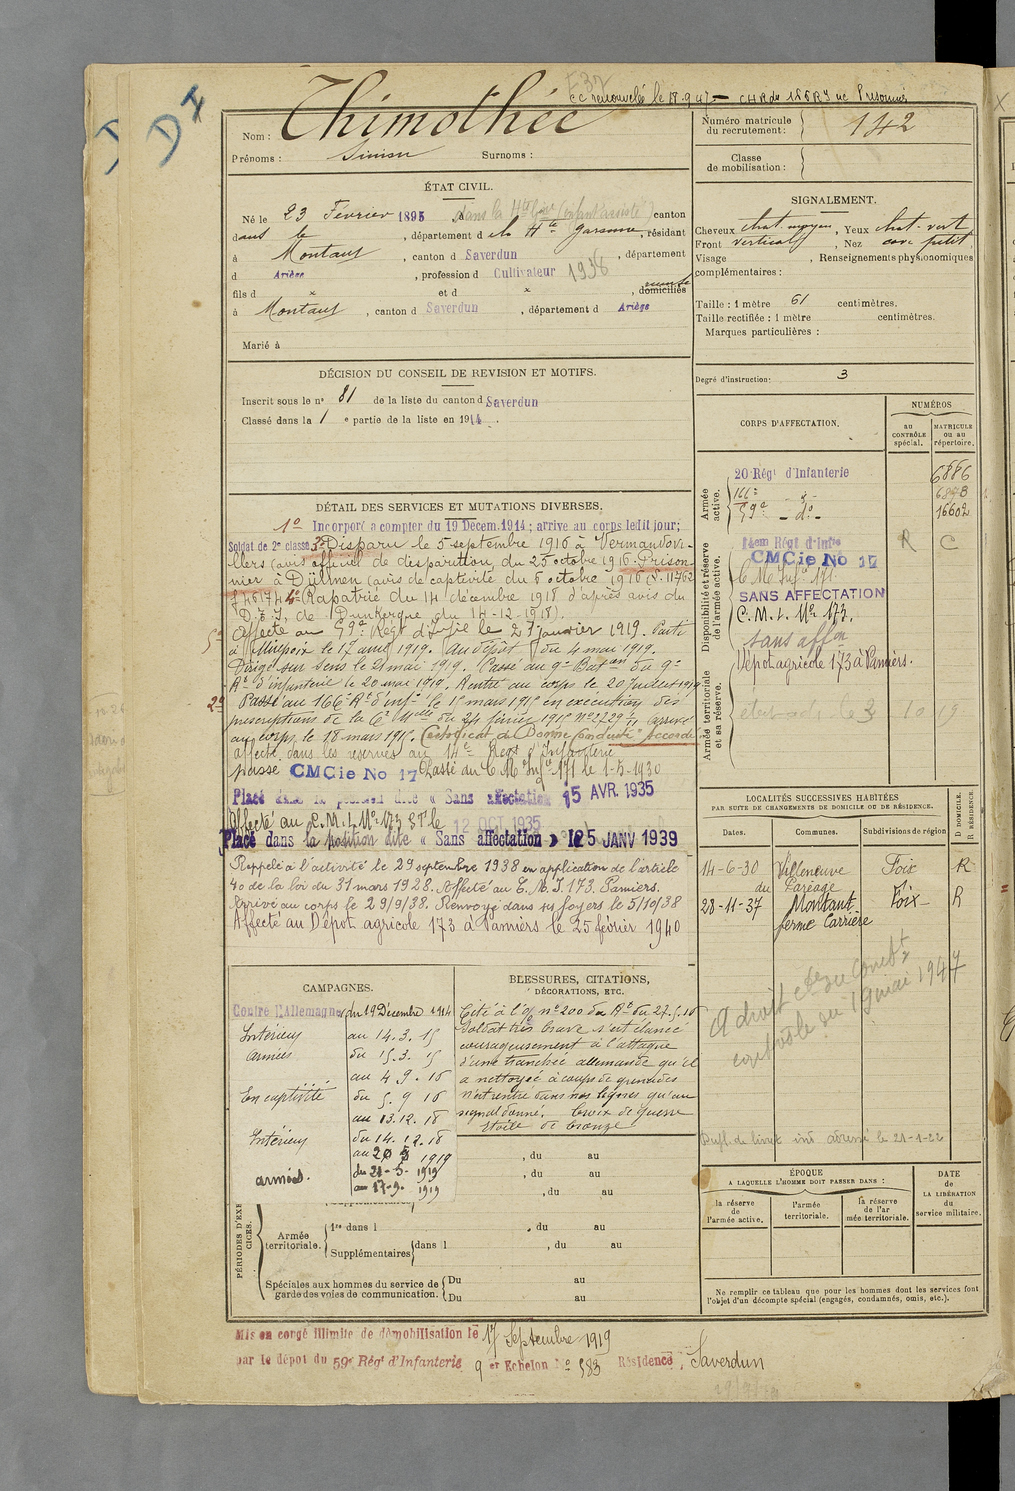 cc renouvelée le 18.9.47
Nom : Thimothée
Prénoms : Simon Surnoms :
ÉTAT CIVIL.
Né le 23 Février 1895 dans la Hte Gne (enfant assisté) canton
dans le , département de la Hte Garonne, résidant
à Montaut , canton d Saverdun , département
d Ariège , profession d Cultivateur 1936
fils d x et d x , domiciliés
à Montaut , canton d Saverdun , département d Ariège
Marié à
DÉCISION DU CONSEIL DE REVISION ET MOTIFS.
Inscrit sous le n° 81 de la liste du canton d Saverdun
Classé dans la 1 e partie de la liste en 1914 .
DÉTAIL DES SERVICES ET MUTATIONS DIVERSES.
1° Incorporé à compter du 19 Decem. 1914 ; arrivé au corps ledit jour;
Soldat de 2e classe 3° Disparu le 5 septembre 1916 à Vermandovi-
llers (avis officiel de disparition du 25 octobre 1916. Prison-
nier à Dülmen (avis de captivité du 6 octobre 1916 N. 11762
f 46174 4° Rapatrié du 14 décembre 1918 d'après avis du
D.E.I. de Dunkerque du 14-12-1918).
5° Affecté au 59e Régt d'Infie le 27 janvier 1919. Parti
à Mirepoix le 17 avril 1919. Au dépôt du 4 mai 1919.
Dirigé sur Sens le 21 mai 1919. Passé au 9e Baton du 9e
Rt d'infanterie le 20 mai 1919. Rentré au corps le 20 Juillet 1919
2° Passé au 166e Rt d'infie le 15 mars 1915 en exécution des
prescriptions de la Ce Mlle du 24 février 1915 n° 2229 arrivé
au corps le 18 mars 1915. Certificat de Bonne Conduite "Accordé"
affecté dans les réserves au 14e Régt d'Infanterie
passé CMCie No 17 Classé du C M Infie 171 le 1-5-1930
Placé dans la position dite « Sans affectation » 15 AVR. 1935
Affecté au C.M.I. N° 173 S.P. le 12 OCT 1935
Placé dans la position dite « Sans affectation » le 25 JANV 1939
Rappelé à l'activité le 29 septembre 1938 en application de l'article
40 de la loi du 31 mars 1928. Affecté au C.M.I. 173. Pamiers.
Arrivé au corps le 29/9/38. Renvoyé dans ses foyers le 5/10/38
Affecté au Dépôt agricole 173 à Pamiers le 25 février 1940
CAMPAGNES.
Contre l'Allemagne du 19 Décembre 1914
Intérieur au 14.3.15
armées du 15.3.15
au 4.9.16
En captivité du 5.9 16
au 13.12.18
Intérieur du 14.12.18
au 20 5 1919
armées. du 21-5-1919
au 17-9-1919
BLESSURES, CITATIONS,
DÉCORATIONS, ETC.
Cité à l'o/ n° 200 du Rt du 27.5.16
Soldat très brave s'est élancé
courageusement à l'attaque
d'une tranchée allemande qu'il
a nettoyée à coups de grenades
n'est rentré dans nos lignes qu'au
signal donné. Croix de guerre
Étoile de bronze
, du au
, du au
, du au
PÉRIODES D'EXERCICES.
Armée territoriale. 1re dans l , du au
Supplémentaires dans l , du au
Spéciales aux hommes du service de garde des voies de communication. Du au
Du au
Mis en congé illimité de démobilisation le 17 Septembre 1919
par le dépôt du 59e Régt d'Infanterie 9 er Echelon N° 583 Résidence, Saverdun
Numéro matricule du recrutement : 142
Classe de mobilisation :
SIGNALEMENT.
Cheveux chat. moyen , Yeux chat-vert
Front vertical , Nez cave petit
Visage , Renseignements physionomiques
complémentaires :
Taille : 1 mètre 61 centimètres.
Taille rectifiée : 1 mètre centimètres.
Marques particulières :
Degré d'instruction: 3
CORPS D'AFFECTATION.
NUMÉROS
AU CONTRÔLE spécial.
MATRICULE ou au répertoire.
Armée active.
20 Régt d'Infanterie 6886
166e - d° - 6898
59e - d° - 16602
Disponibilité et réserve de l'armée active.
14em Régt d'Infie R C
CMCie No 17
C M Infie 171
SANS AFFECTATION
C.M.I. N° 173.
sans affon
Armée territoriale et sa réserve.
Dépot agricole 173 à Pamiers.
LOCALITÉS SUCCESSIVES HABITÉES
PAR SUITE DE CHANGEMENTS DE DOMICILE OU DE RÉSIDENCE.
Dates. Communes. Subdivisions de région D DOMICILE. R RÉSIDENCE.
14-6-30 Villeneuve du Paréage Foix R
28-11-37 Montaut ferme Carrière Foix R
A droit cte du Combatt
contrôle du 19 mai 1947
Dupl. de livret ind adressé le 21-1-22
ÉPOQUE
A LAQUELLE L'HOMME DOIT PASSER DANS :
la réserve de l'armée active.
l'armée territoriale.
la réserve de l'armée territoriale.
DATE DE LA LIBÉRATION du service militaire.
Ne remplir ce tableau que pour les hommes dont les services font
l'objet d'un décompte spécial (engagés, condamnés, omis, etc.).